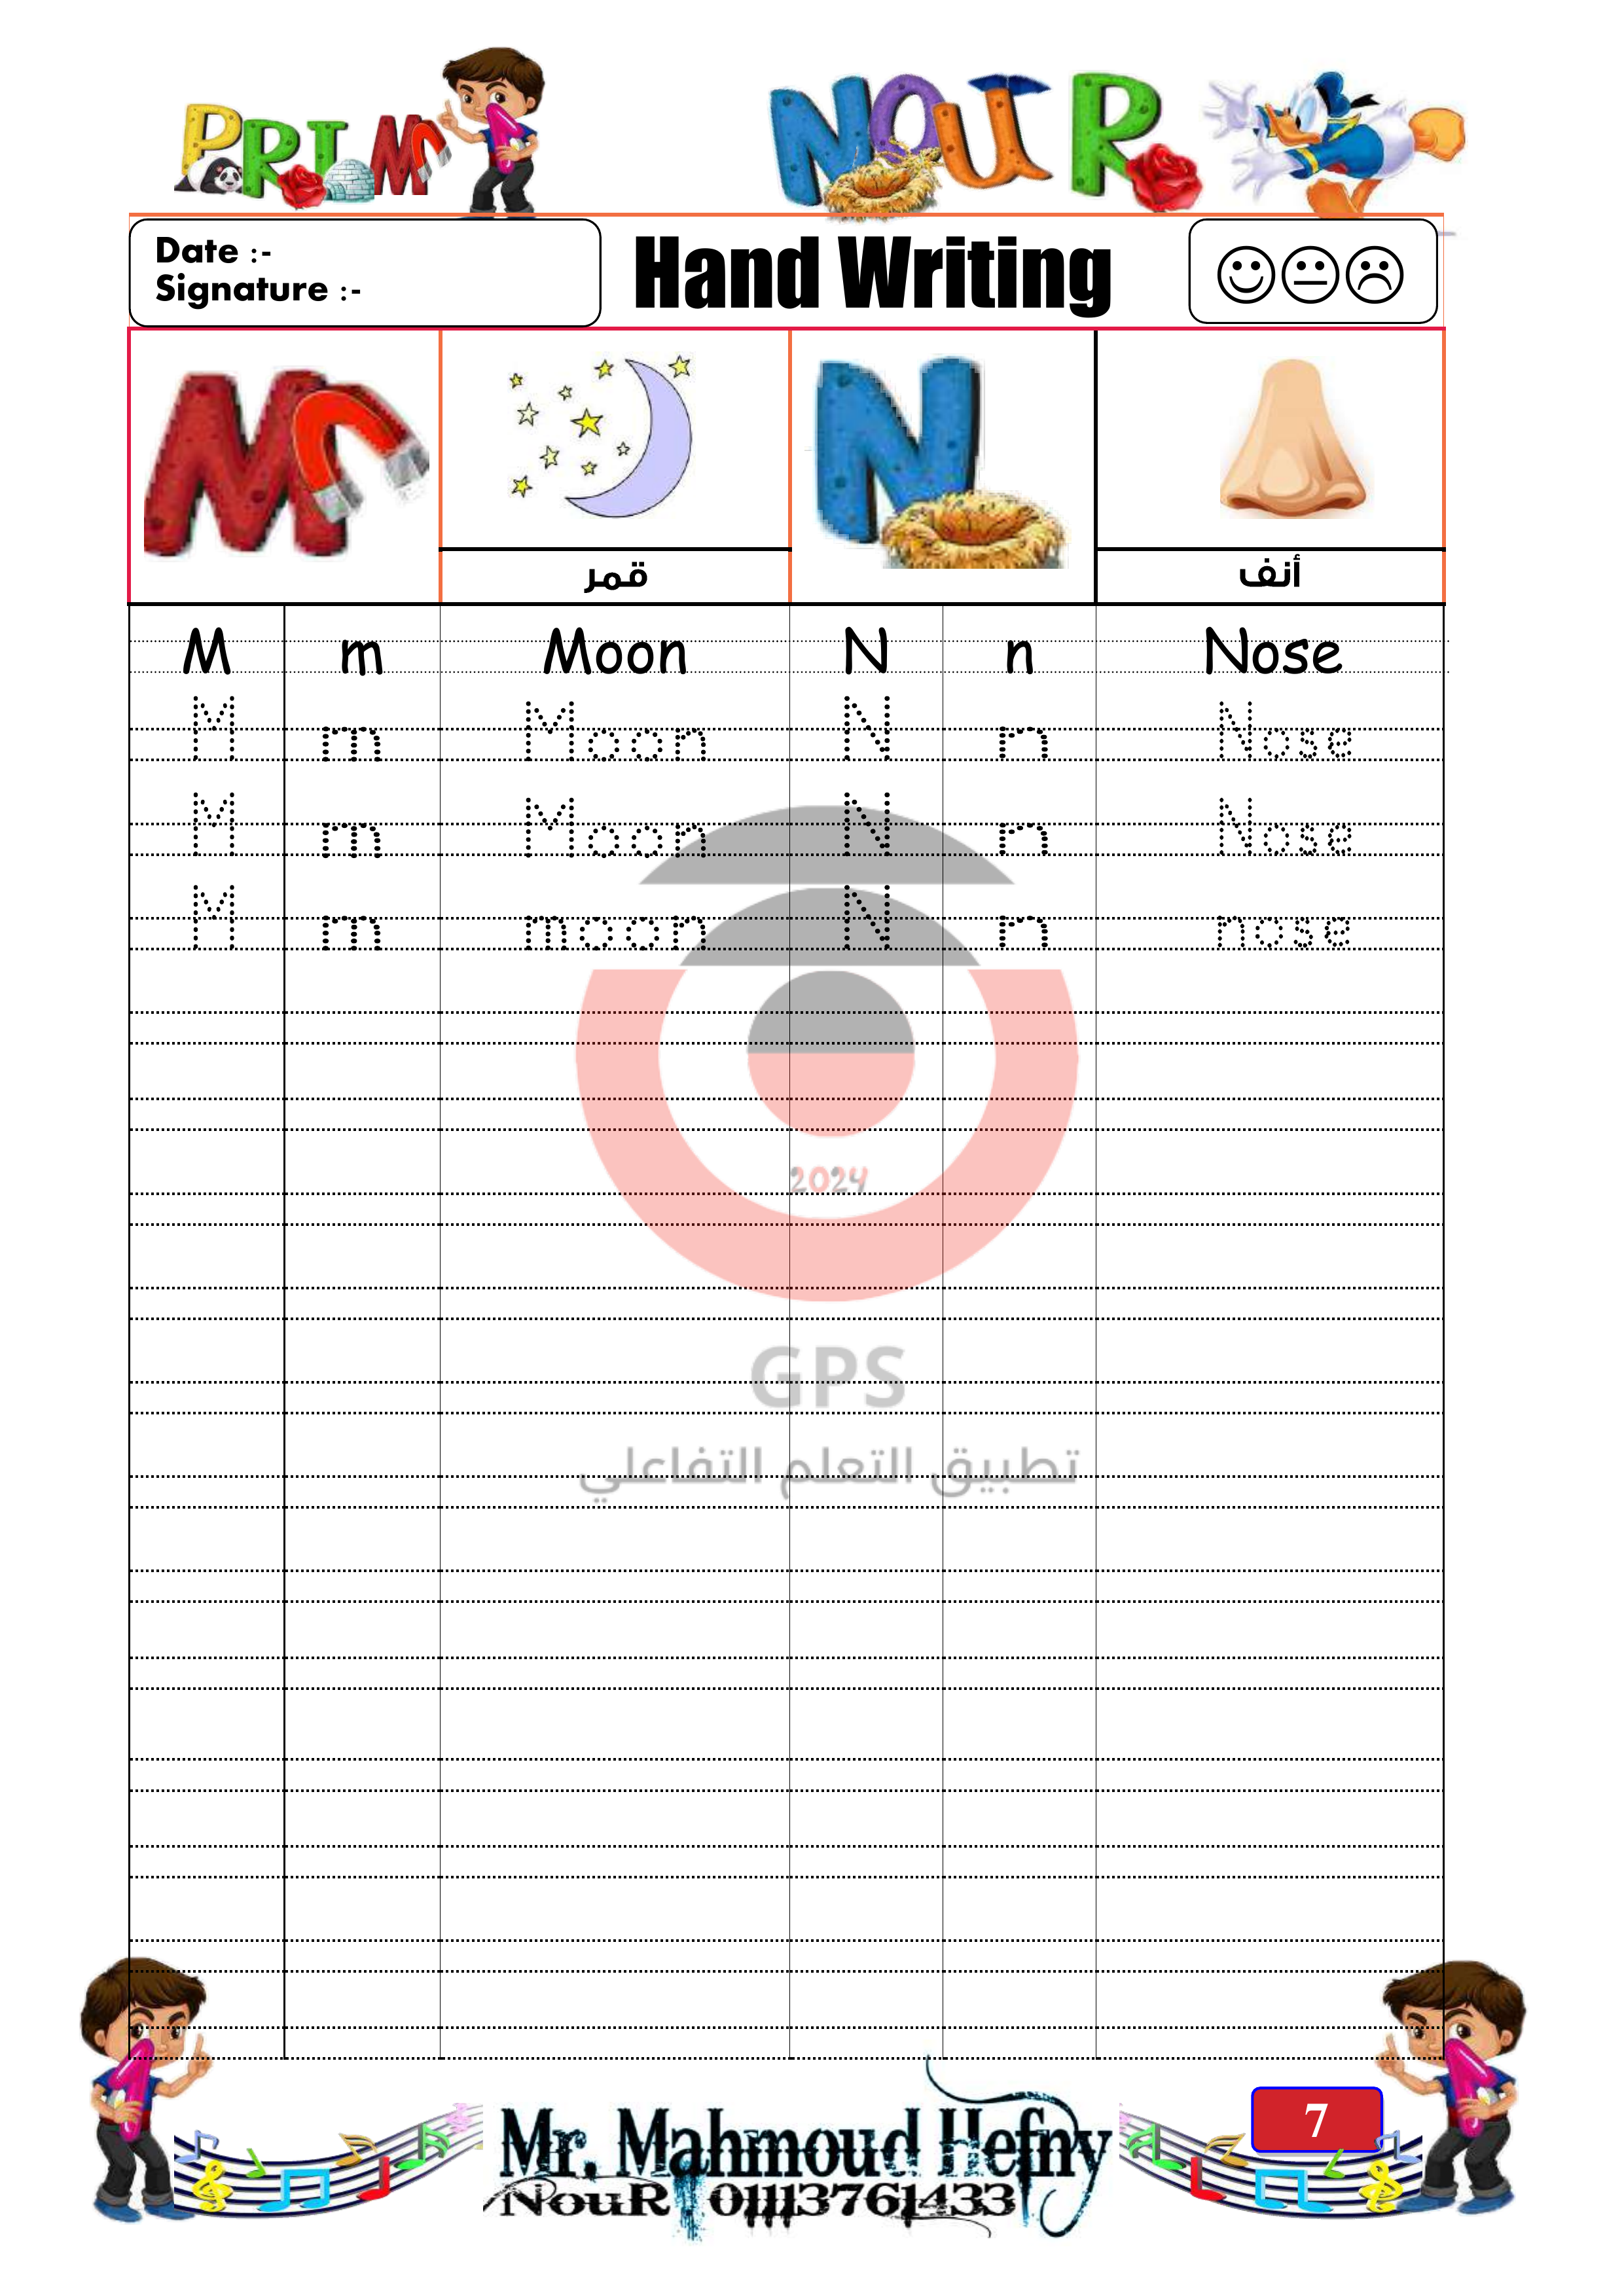 PRIM 1
NOUR
Date :-
Signature :-
Hand Writing
M N
قمر أنف
M m Moon N n Nose
M m Moon N n Nose
M m Moon N n Nose
M m moon N n nose
2024
GPS
تطبيق التعلم التفاعلي
7
Mr. Mahmoud Hefny
NouR . 01113761433